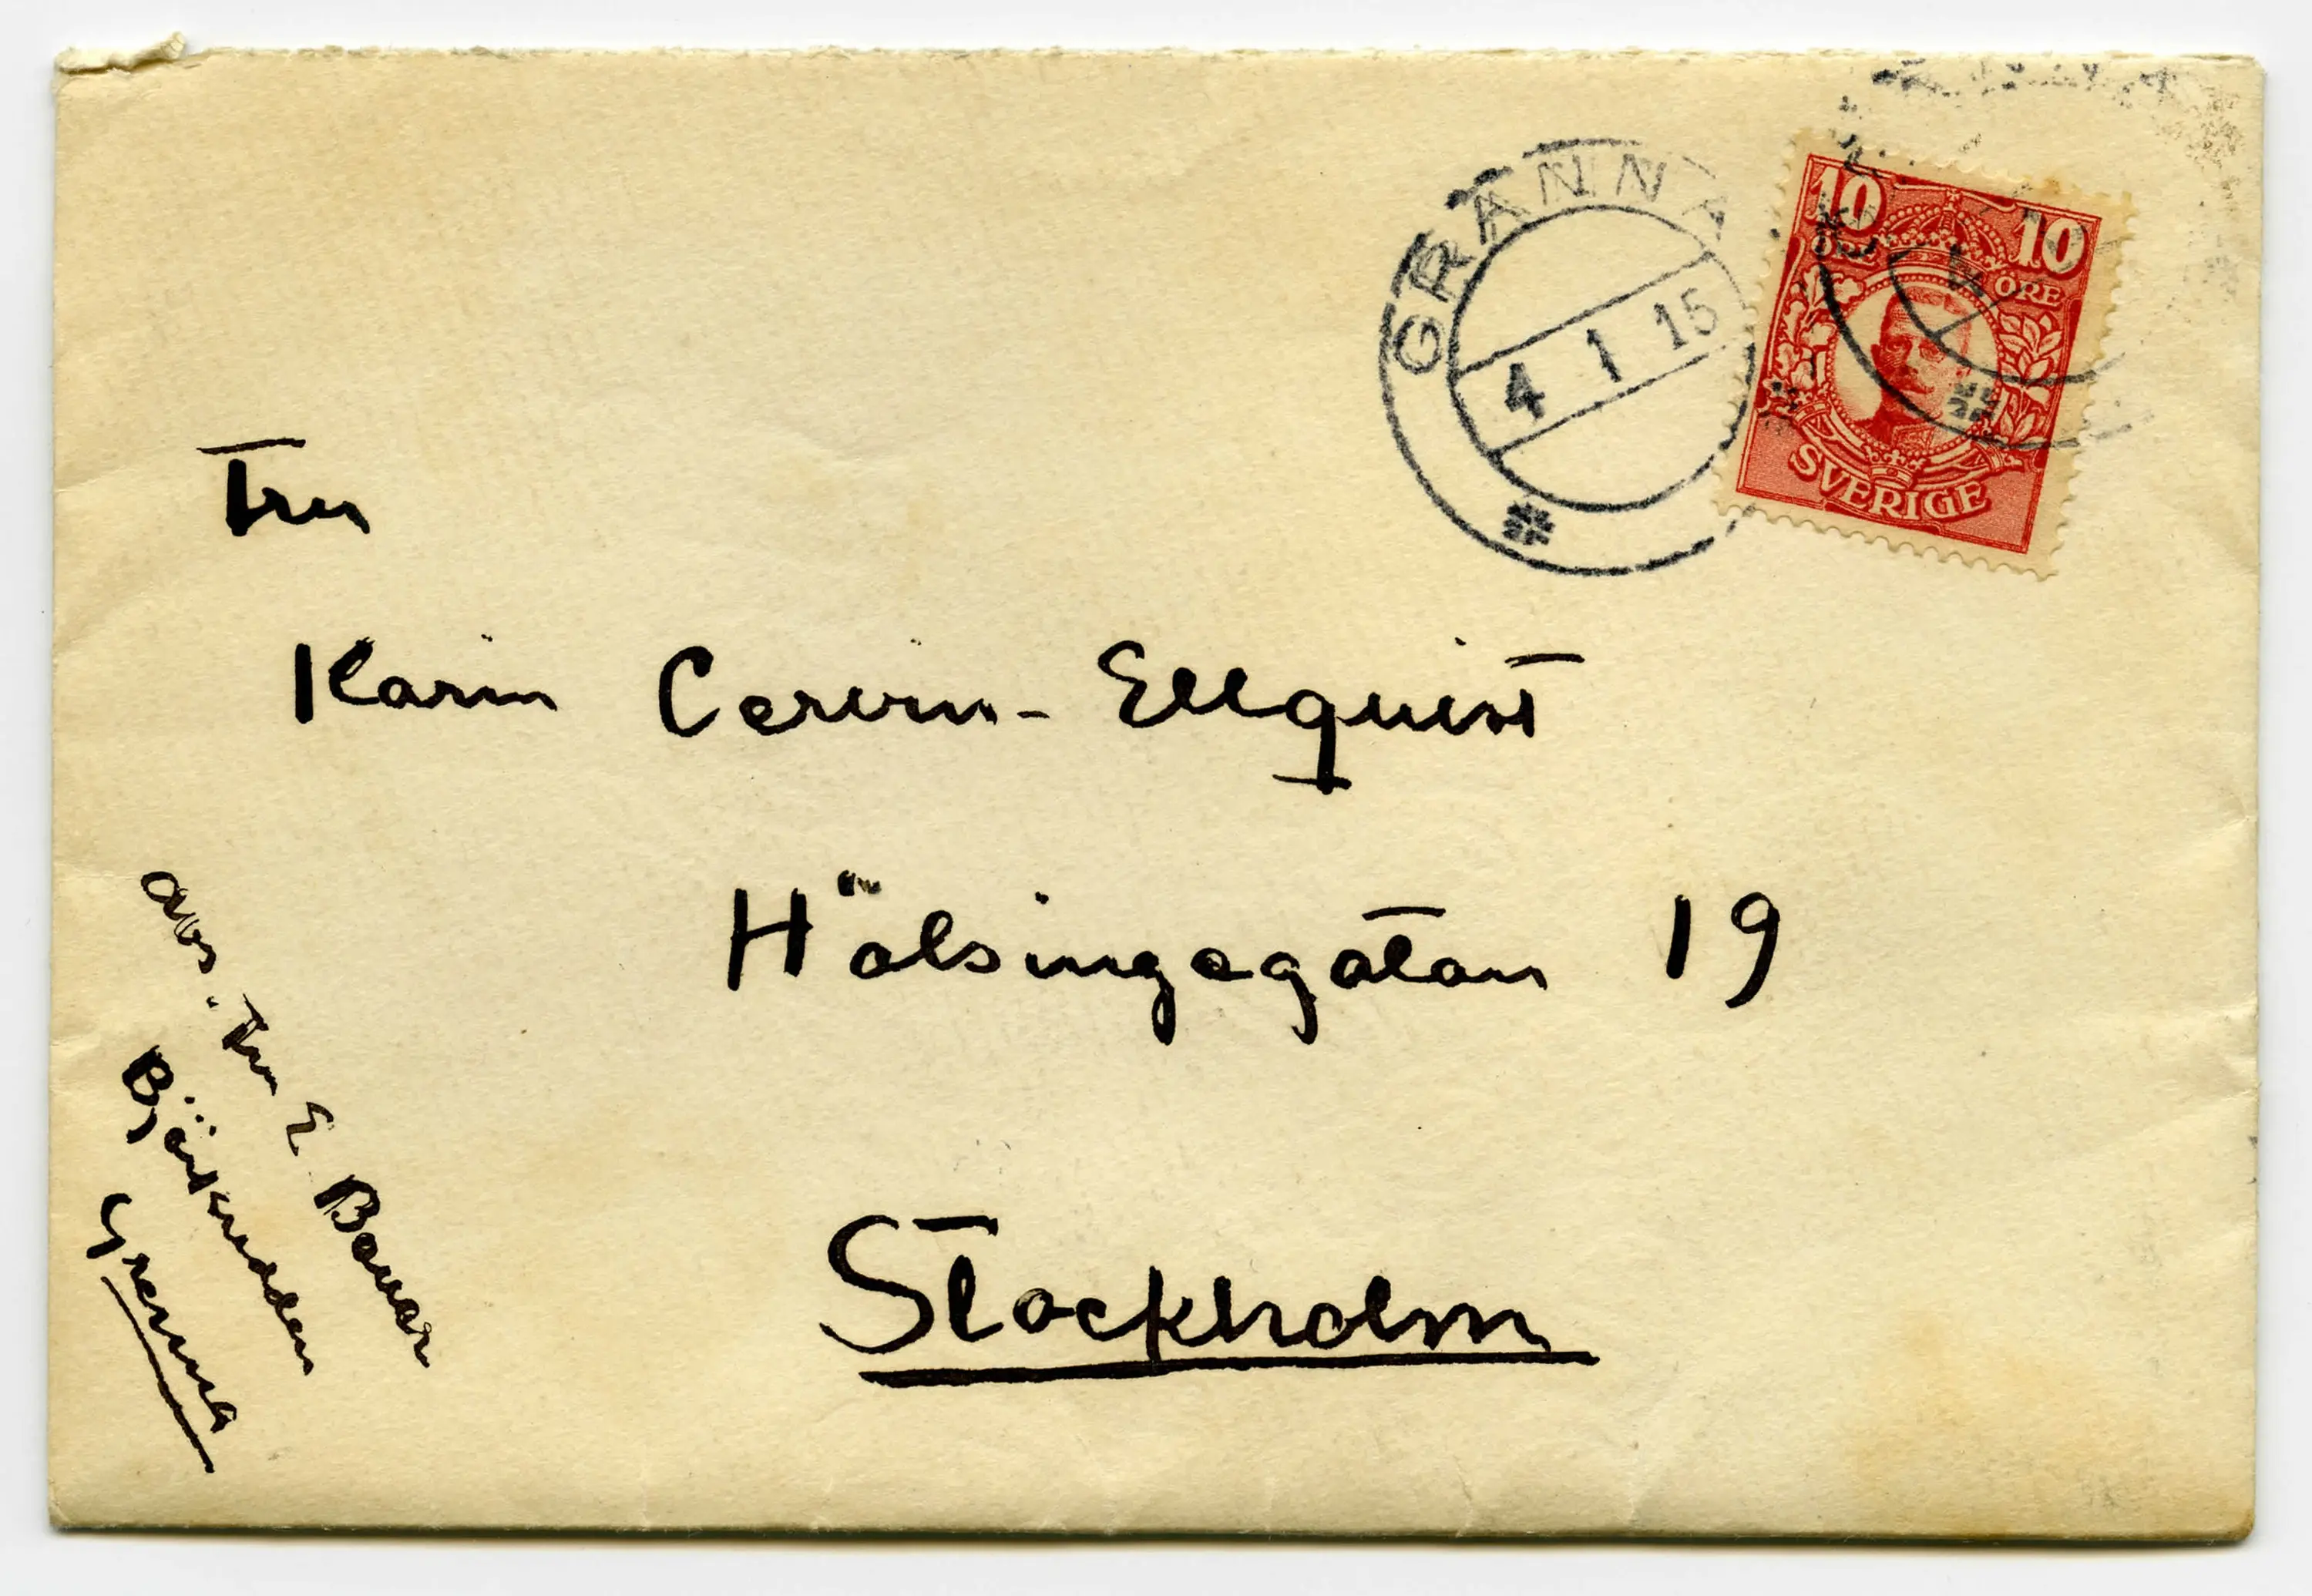 GRÄNNA
4 1 15
10 10
ÖRE ÖRE
SVERIGE
Fru
Karin Cervin-Ellquist
Hälsingegatan 19
Stockholm
avs. Fru E Bauer
Björkudden
Grenna